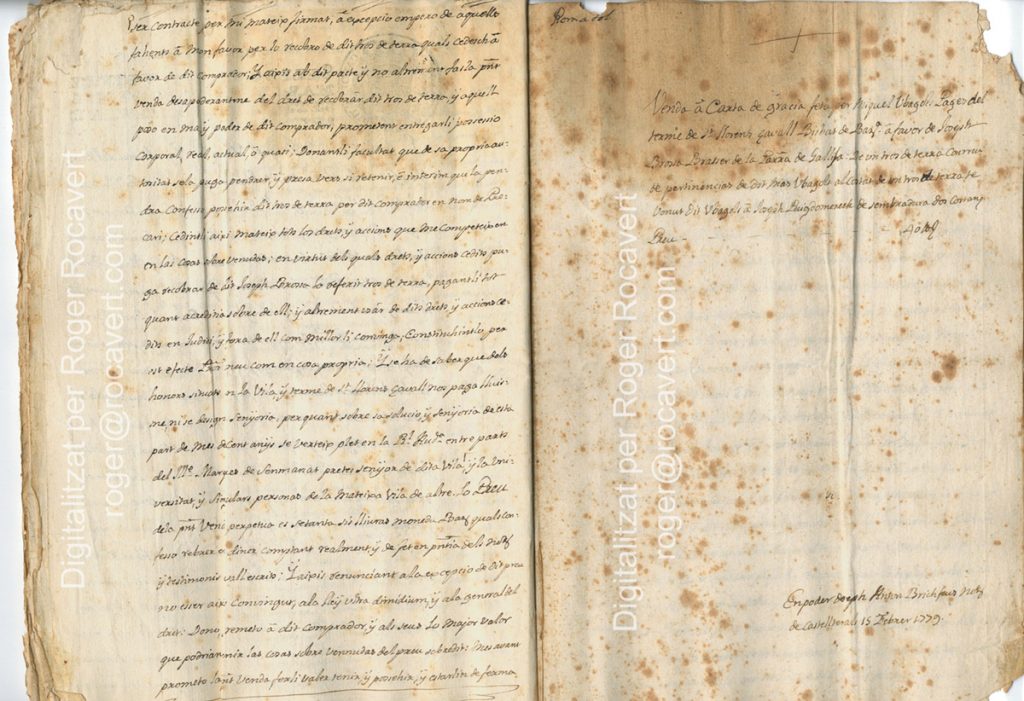 per contracte per mi mateix firmat, â excepcio empero de aquells
fahents â mon favor per lo recobro de dit tros de terra quals cedesch â
favor de dit comprador; Y aixis ab dit pacte y no altrement fas la pnt
venda desapoderantme del dret de recobrar dit tros de terra, y aquell
poso en ma y poder de dit comprador, prometent entregarli possessio
corporal, real, actual, ô quasi; Donantli facultat que de sa propria au-
toritat sela puga pendrer, y presa vers si retenir, ê interim que la pen-
dra Confesso posehir dit tros de terra per dit comprador en nom de Pre-
cari; Cedintli aixi mateix tots los drets, y accions que me competeixen
en las cosas sobre venudas; en virtut dels quals drets, y accions cedits pu-
ga recobrar de dit Joseph Brossa lo referit tros de terra, pagantli tot
quant acredita sobre de ell; y altrement usar de dits drets, y accions ce-
dits en Judici, y fora de ell com millor li convinga, Constituhintlo per
est efecte Pror meu com en cosa propria; Y se ha de saber que dels
honors situats en la Vila, y terme de St. Llorens Savall nos paga lluis-
me, ni se design senyoria, per quant sobre sa solucio, y senyoria de esta
part de mes de cent anys se verteix plet en la Rl. Auda. entre parts
del Mre. Marques de Senmanat pretes senyor de dita Vila, y la Uni-
versitat, y singulars personas de la mateixa Vila de altre. Lo Preu
de la pnt Venda perpetua es setanta sis lliuras moneda Barsa quals con-
fesso rebrer â diner comptant realment, y de fet en pntia dels
y testimonis vall escrits; Y aixis renunciant a la excepcio de dit preu
no esser aixi convingut, a la lley ultra dimidium, y a la general del
dret: Dono, remeto â dit comprador, y als seus lo major valor
que podrian tenir las cosas sobre vennudas del preu sobredit: Mes avant
prometo la pnt Venda ferli valer tenir, y posehir, y estarlin de ferma
Roma
Venda â Carta de gracia feta per Miquel Ubagols Pages del
terme de St. Llorens Savall Bisbat de Bara. â favor de Joseph
Brosa Braser de la Parra. de Gallifa. De un tros de terra
de pertinencias de dit mas Ubagols al costat de un tros de terra te
venut dit Ubagols â Joseph Puigdomenech de sembradura dos
Preu
En poder de Joseph Anton Brichfeus Noty
de Castelltersol 15 Febrer 1779.
Digitalitzat per Roger Rocavert
roger@rocavert.com
Digitalitzat per Roger Rocavert
roger@rocavert.com